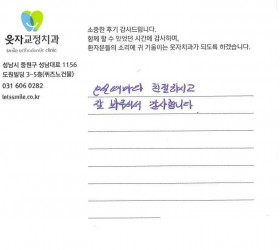 소중한 후기 감사드립니다.
함께 할 수 있었던 시간에 감사하며,
환자분들의 소리에 귀 기울이는 웃자치과가 되도록 하겠습니다.
웃자교정치과
smile orthodontic clinic
성남시 중원구 성남대로 1156
도원빌딩 3~5층(퀴즈노건물)
031 606 0282
letssmile.co.kr
친절하시고
잘 봐주셔서 감사합니다